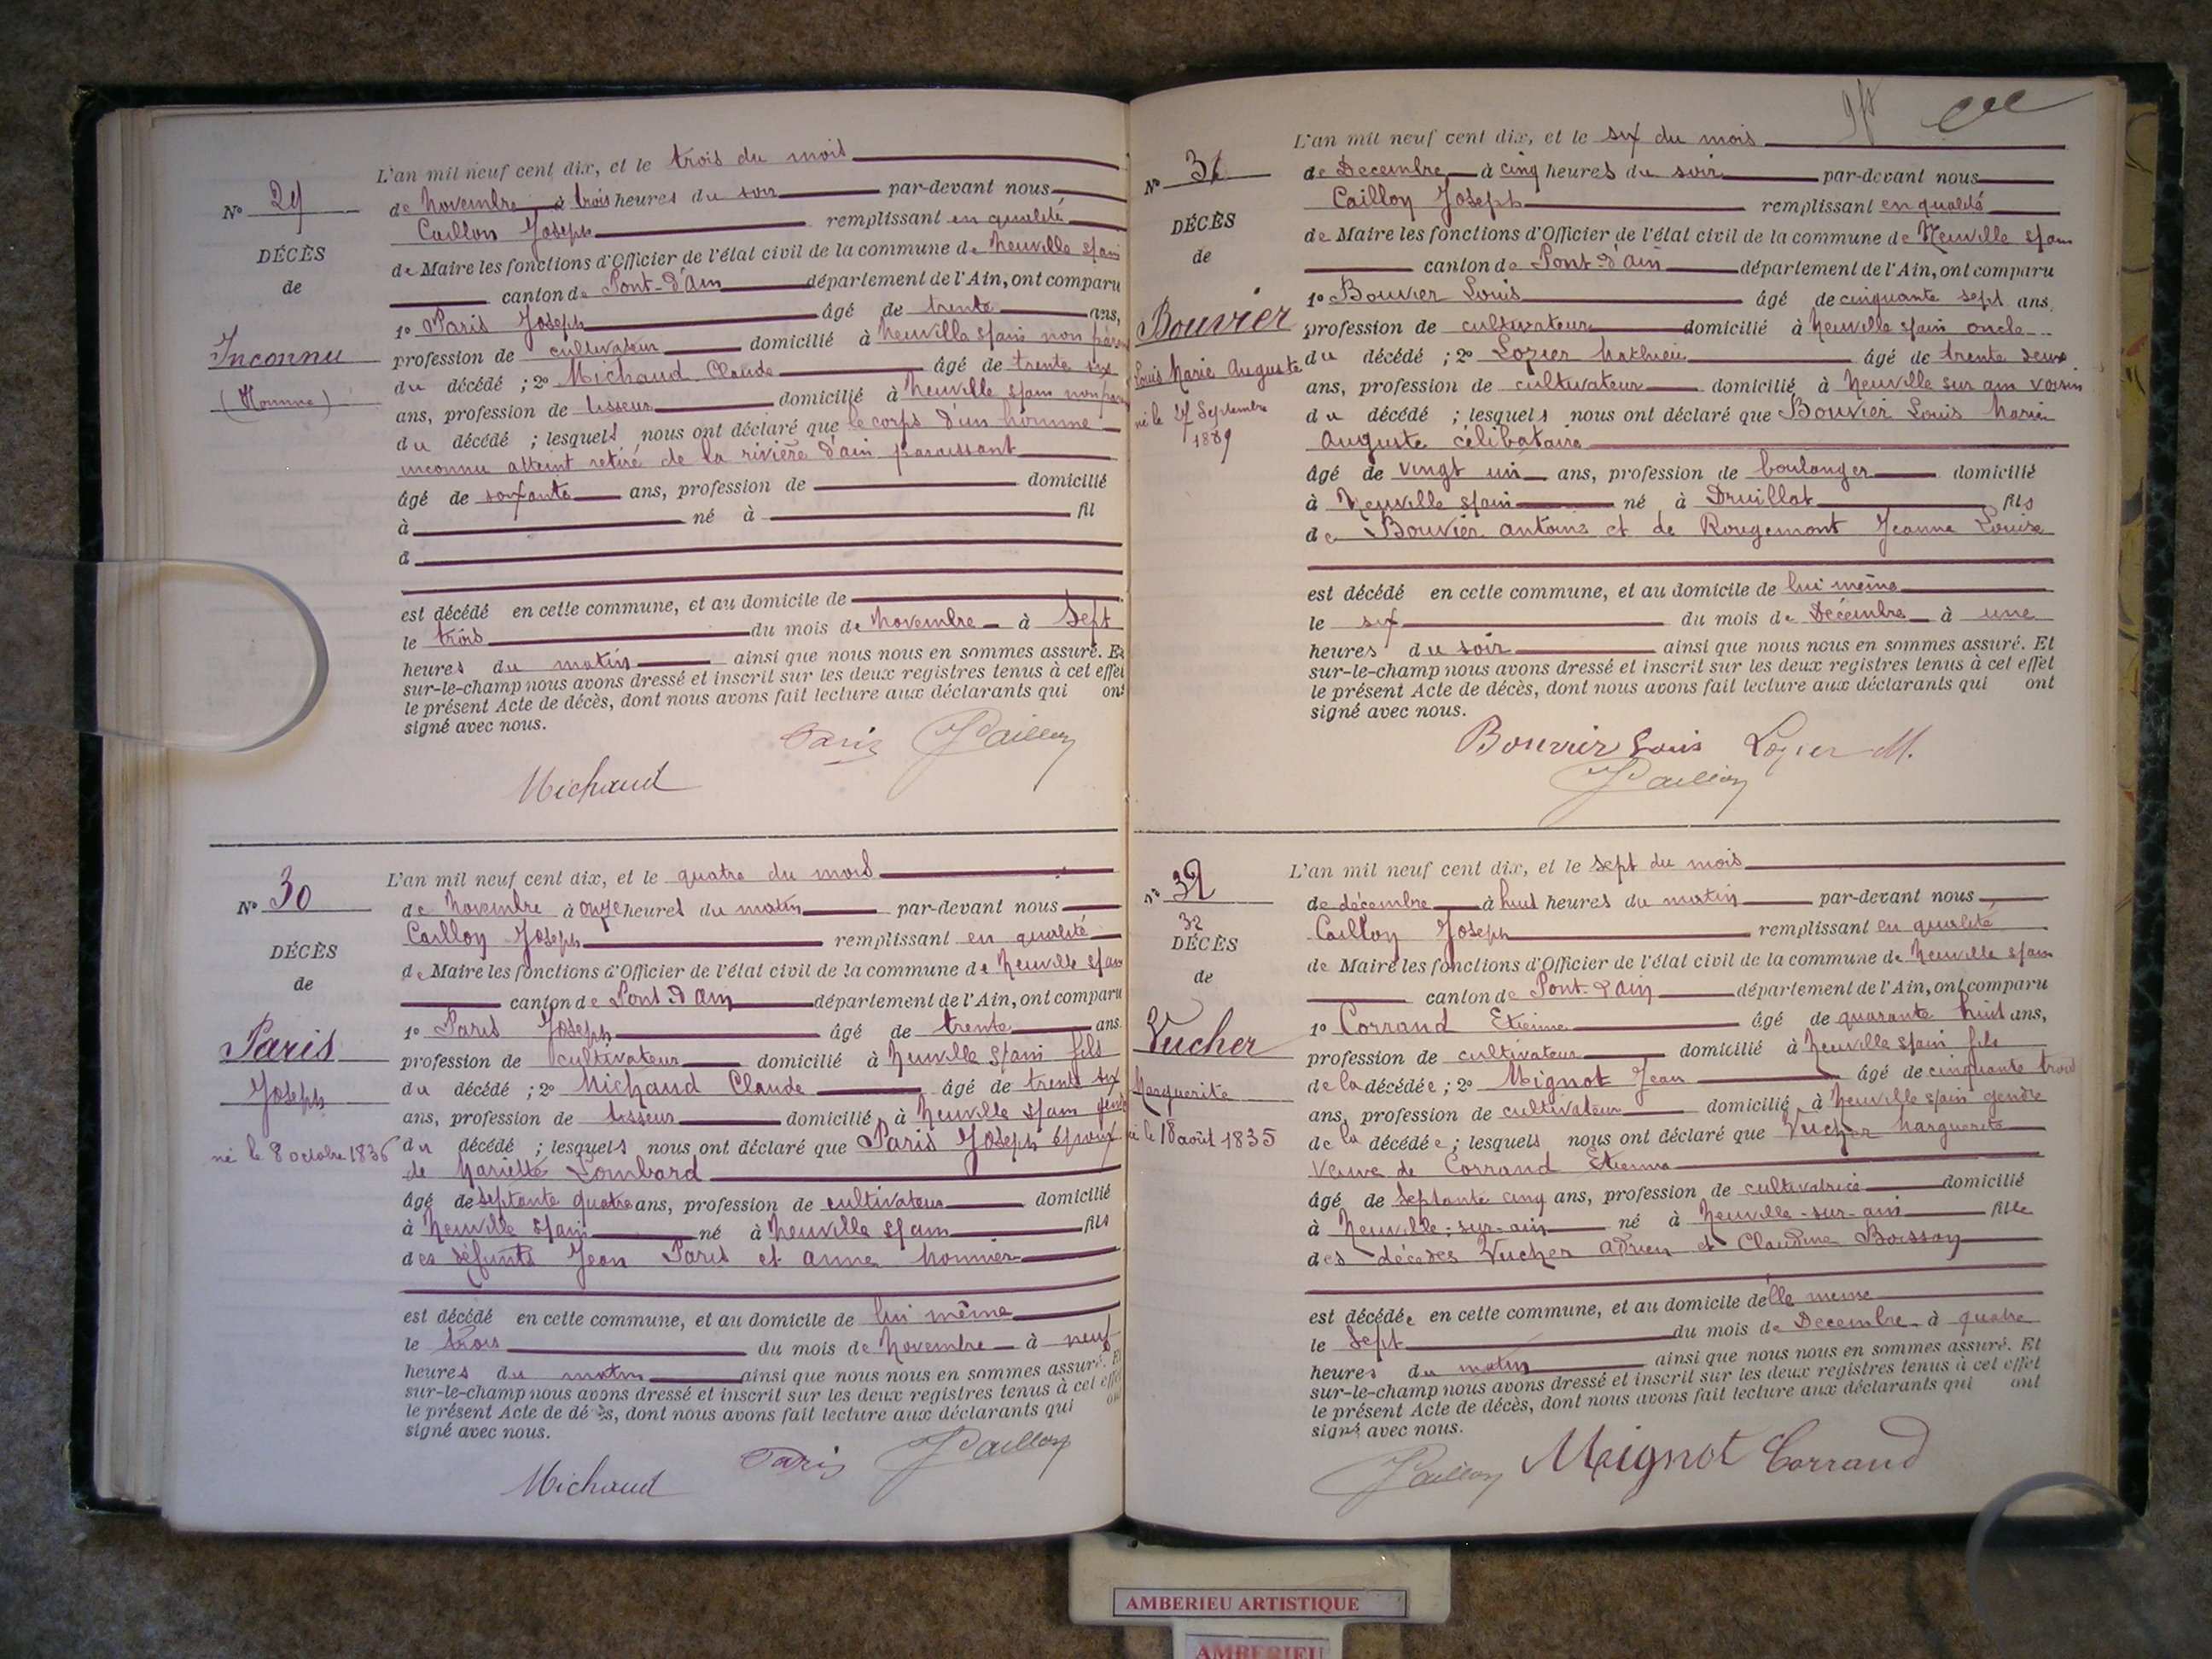 L'an mil neuf cent dix, et le trois du mois
Nº 29
de Novembre à trois heures du soir par-devant nous
Caillon Joseph remplissant en qualité
DÉCÈS
de Maire les fonctions d'Officier de l'état civil de la commune de Neuville s/ain
de
canton de Pont-d'Ain département de l'Ain, ont comparu
1º Paris Joseph âgé de trente ans,
Inconnu
profession de cultivateur domicilié à Neuville s/ain non
du décédé ; 2º Michaud Claude âgé de trente six
(Homme)
ans, profession de tisseur domicilié à Neuville s/ain non
du décédé ; lesquels nous ont déclaré que le corps d'un homme
inconnu atteint retiré de la rivière d'ain paraissant
âgé de soixante ans, profession de domicilié
à né à fil
d
est décédé en cette commune, et au domicile de
le trois du mois de Novembre à Sept
heures du matin ainsi que nous nous en sommes assuré. Et
sur-le-champ nous avons dressé et inscrit sur les deux registres tenus à cet effet
le présent Acte de décès, dont nous avons fait lecture aux déclarants qui ont
signé avec nous.
Paris JCaillon
Michaud
L'an mil neuf cent dix, et le quatre du mois
Nº 30
de Novembre à onze heures du matin par-devant nous
Caillon Joseph remplissant en qualité
DÉCÈS
de Maire les fonctions d'Officier de l'état civil de la commune de Neuville s/ain
de
canton de Pont d'Ain département de l'Ain, ont comparu
1º Paris Joseph âgé de trente ans.
Paris
profession de cultivateur domicilié à Neuville s/ain fils
Joseph
du décédé ; 2º Michaud Claude âgé de trente six
ans, profession de tisseur domicilié à Neuville s/ain gendre
né le 8 octobre 1836
du décédé ; lesquels nous ont déclaré que Paris Joseph époux
de Mariette Lombard
âgé de septante quatre ans, profession de cultivateur domicilié
à Neuville s/ain né à Neuville s/ain fils
des défunts Jean Paris et Anne Monnier
est décédé en cette commune, et au domicile de lui même
le trois du mois de Novembre à neuf
heures du matin ainsi que nous nous en sommes assuré. Et
sur-le-champ nous avons dressé et inscrit sur les deux registres tenus à cet effet
le présent Acte de décès, dont nous avons fait lecture aux déclarants qui ont
signé avec nous.
Paris JCaillon
Michaud
L'an mil neuf cent dix, et le six du mois
Nº 31
de Decembre à cinq heures du soir par-devant nous
Caillon Joseph remplissant en qualité
DÉCÈS
de Maire les fonctions d'Officier de l'état civil de la commune de Neuville s/ain
de
canton de Pont-d'ain département de l'Ain, ont comparu
1º Bouvier Louis âgé de cinquante sept ans,
Bouvier
profession de cultivateur domicilié à Neuville s/ain oncle
Louis Marie Auguste
du décédé ; 2º Lozier Mathieu âgé de trente deux
ans, profession de cultivateur domicilié à Neuville sur ain voisin
né le 27 Septembre
1889
du décédé ; lesquels nous ont déclaré que Bouvier Louis Marie
Auguste célibataire
âgé de vingt un ans, profession de boulanger domicilié
à Neuville s/ain né à Druillat fils
de Bouvier Antoine et de Rougemont Jeanne Louise
est décédé en cette commune, et au domicile de lui même
le six du mois de Décembre à une
heures du soir ainsi que nous nous en sommes assuré. Et
sur-le-champ nous avons dressé et inscrit sur les deux registres tenus à cet effet
le présent Acte de décès, dont nous avons fait lecture aux déclarants qui ont
signé avec nous.
Bouvier Louis Lozier M.
JCaillon
L'an mil neuf cent dix, et le sept du mois
Nº 32
de décembre à huit heures du matin par-devant nous
32
Caillon Joseph remplissant en qualité
DÉCÈS
de Maire les fonctions d'Officier de l'état civil de la commune de Neuville s/ain
de
canton de Pont-d'ain département de l'Ain, ont comparu
1º Corrand Etienne âgé de quarante huit ans,
Vucher
profession de cultivateur domicilié à Neuville s/ain fils
Marguerite
de la décédée ; 2º Mignot Jean âgé de cinquante trois
ans, profession de cultivateur domicilié à Neuville s/ain gendre
né le 18 août 1835
de la décédée ; lesquels nous ont déclaré que Vucher Marguerite
veuve de Corrand Etienne
âgé de septante cinq ans, profession de cultivatrice domicilié
à Neuville-sur-ain né à Neuville-sur-ain fille
des décédés Vucher Adrien et Claudine Boisson
est décédée en cette commune, et au domicile delle meme
le Sept du mois de Decembre à quatre
heures du matin ainsi que nous nous en sommes assuré. Et
sur-le-champ nous avons dressé et inscrit sur les deux registres tenus à cet effet
le présent Acte de décès, dont nous avons fait lecture aux déclarants qui ont
signé avec nous.
JCaillon Mignot Corrand
AMBERIEU ARTISTIQUE
AMBERIEU